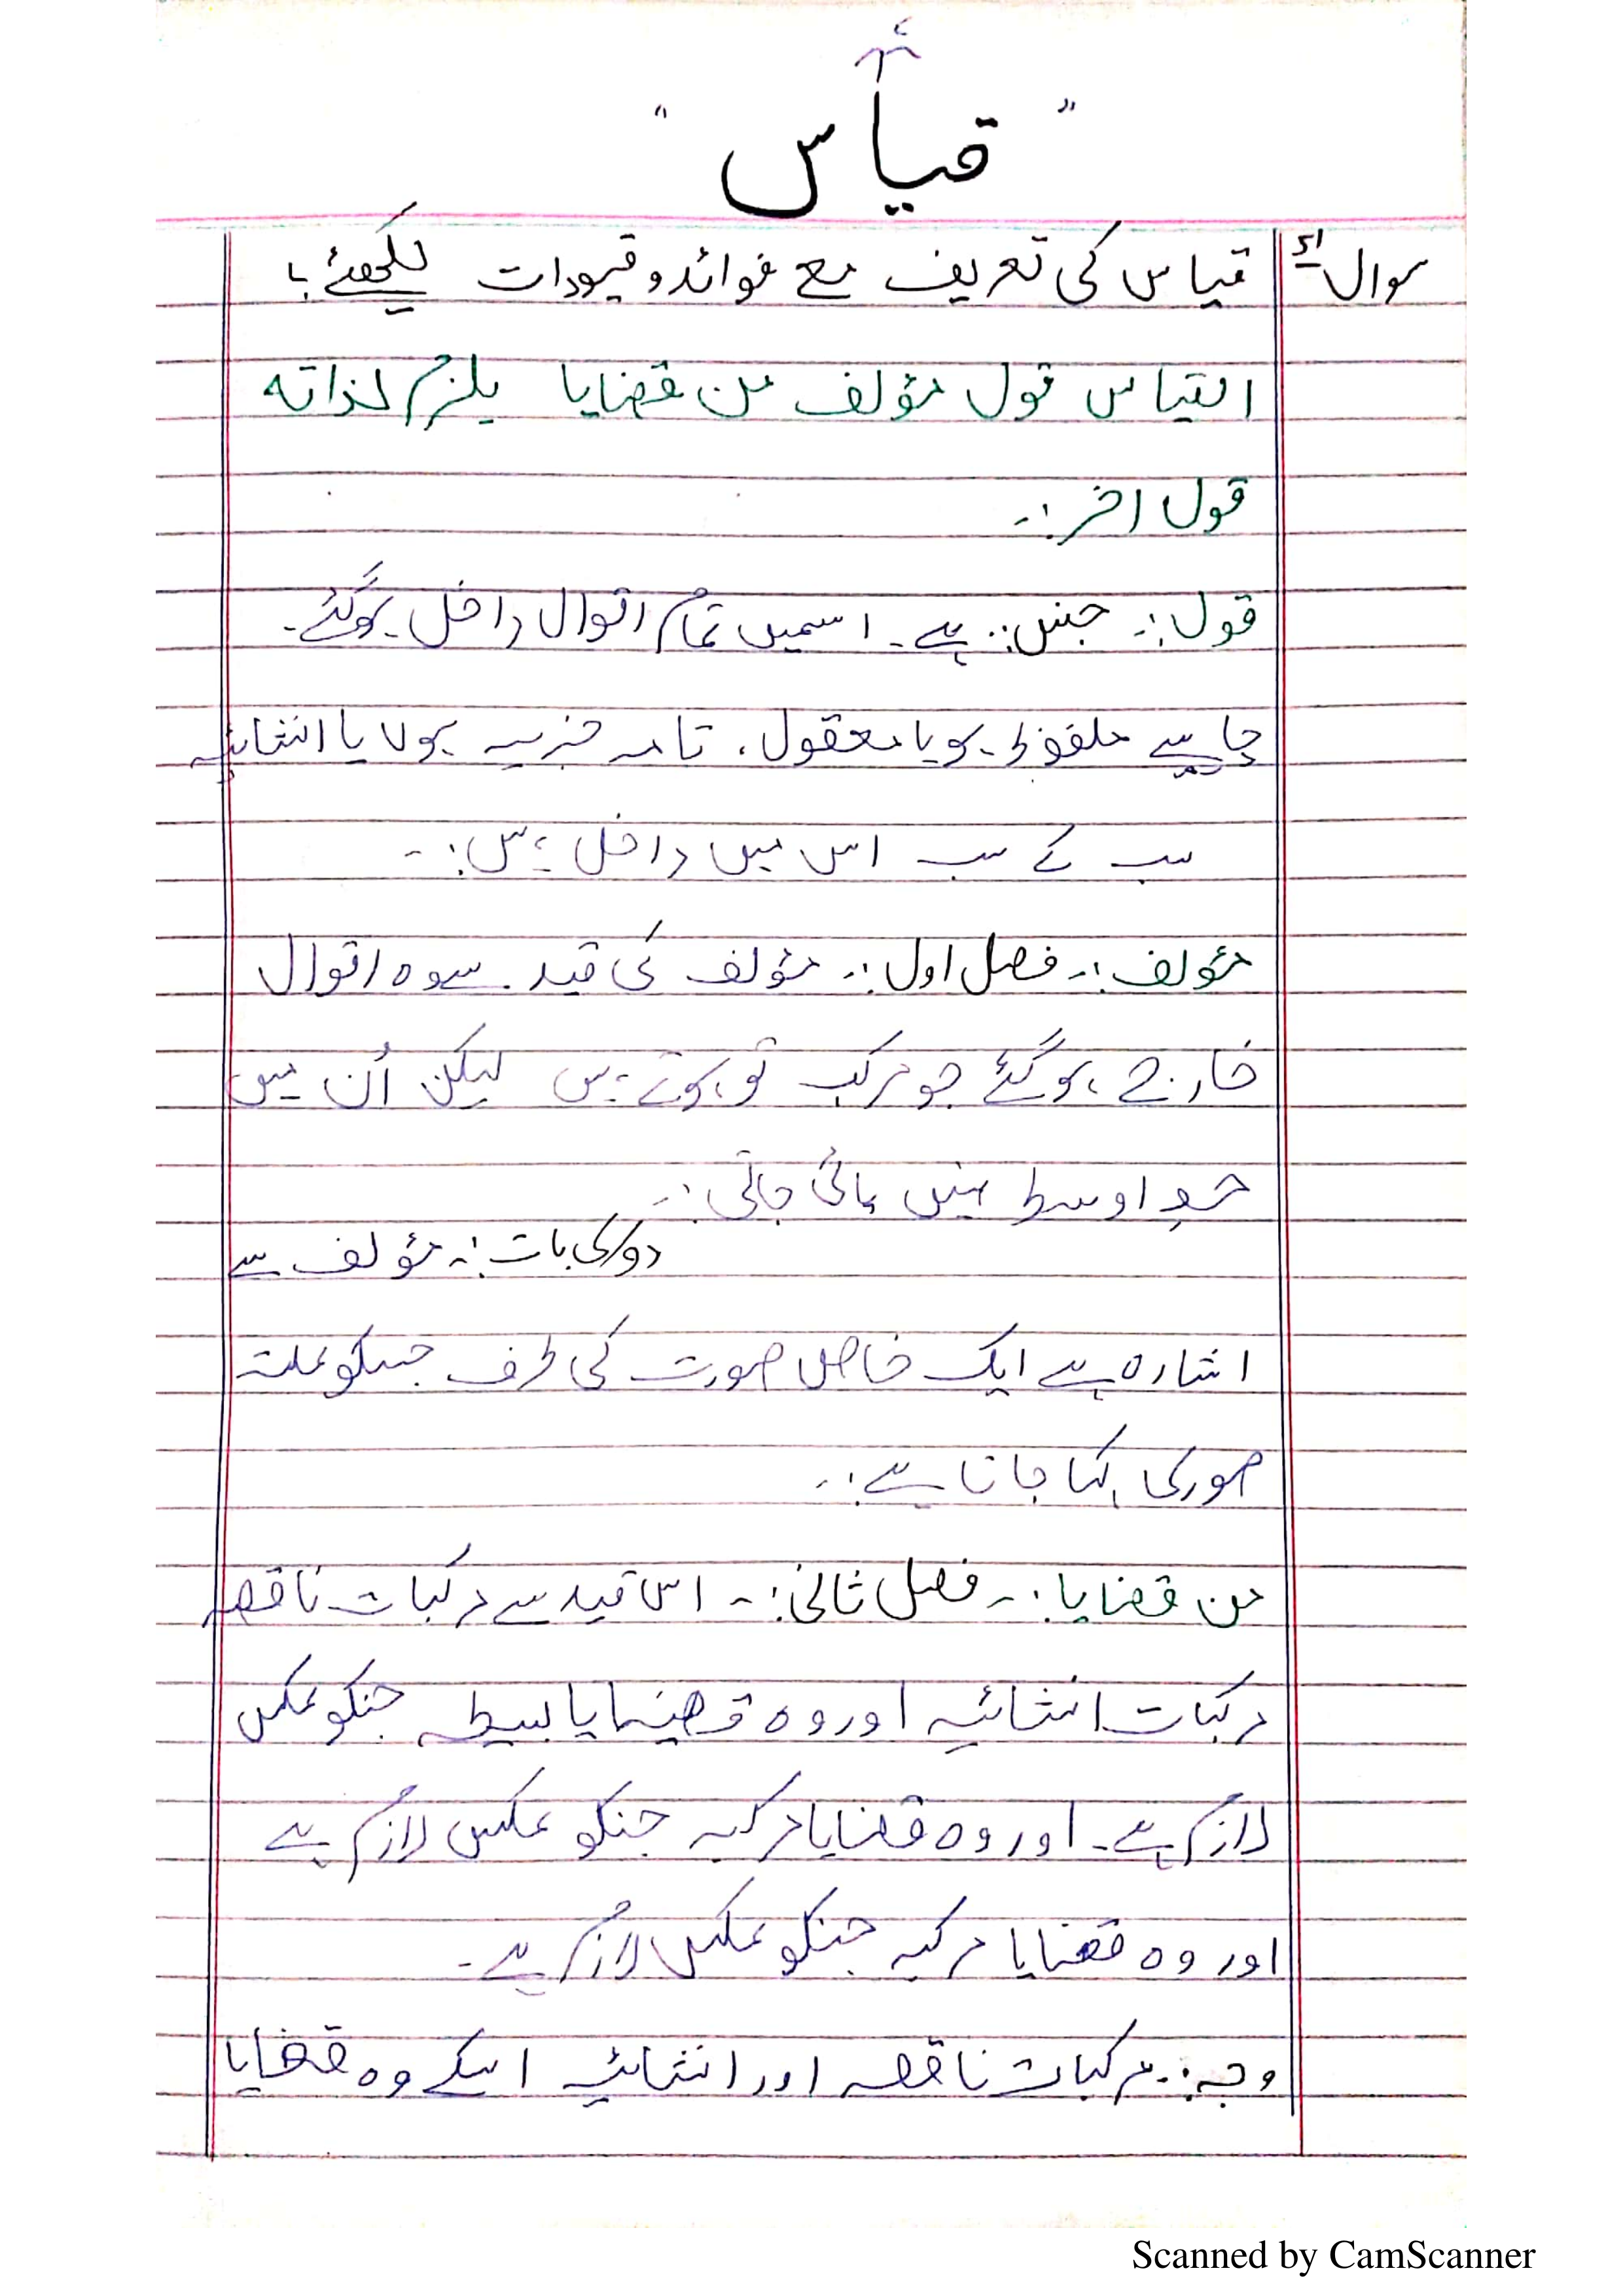 "قیاس"
سوال ۱ قیاس کی تعریف مع فوائد و قیودات لکھئے؟
القیاس قول مؤلف من قضایا یلزم لذاتہ
قول اخر :۔
قول :۔ جنس :۔ ہے۔ اسمیں تمام اقوال داخل ہوگئے۔
چاہیے ملفوظ ہو یا معقول، تامہ خبریہ ہوں یا انشائیہ
سب کے سب اس میں داخل ہیں :۔
مؤلف :۔ فصل اول :۔ مؤلف کی قید سے وہ اقوال
خارج ہوگئے جو مرکب تو ہوتے ہیں لیکن اُن میں
حدِ اوسط نہیں پائی جاتی :۔
دوسری بات :۔ مؤلف سے
اشارہ ہے ایک خاص صورت کی طرف جسکو علت
صوری کہا جاتا ہے :۔
من قضایا :۔ فصل ثانی :۔ اس قید سے مرکبات ناقصہ
مرکبات انشائیہ اور وہ قضایا بسیطہ جنکو عکس
لازم ہے۔ اور وہ قضایا مرکبہ جنکو عکس لازم ہے
اور وہ قضایا مرکبہ جنکو عکس لازم ہے۔
وجہ :۔ مرکبات ناقصہ اور انشائیہ اسکے وہ قضایا
Scanned by CamScanner